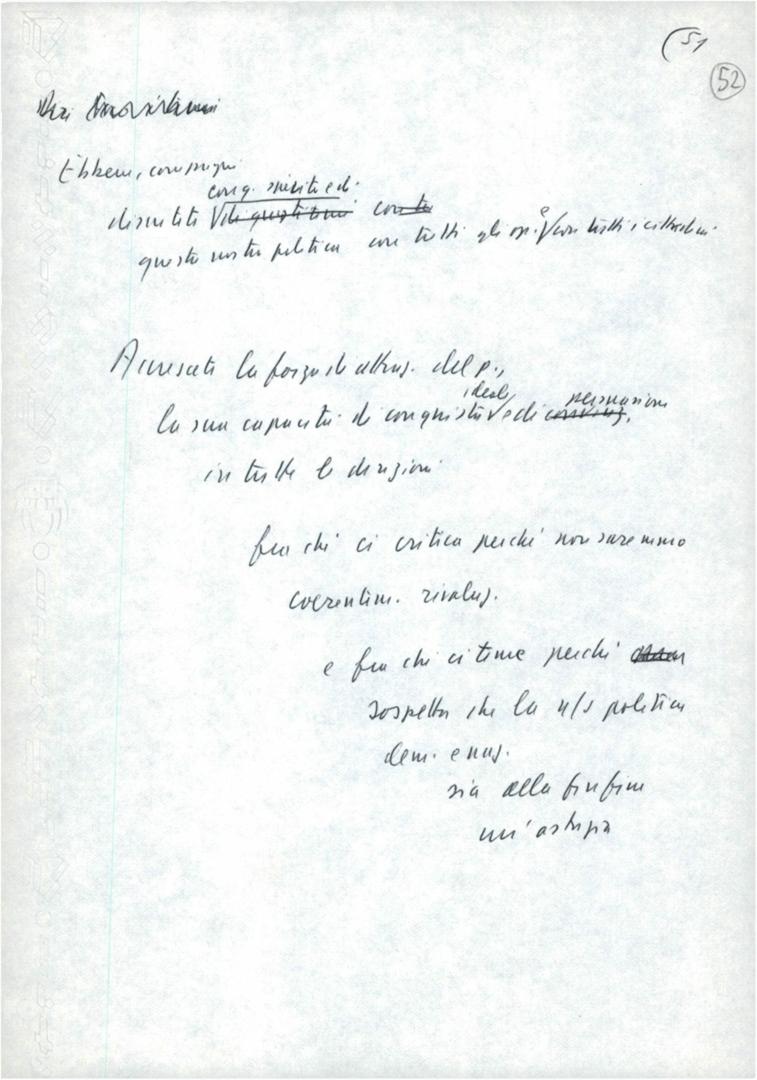 (51
52
Ebbene, compagni
cong. spirito ed.
discutete di questi temi con tu
questa nostra politica con tutti gli op. e con tutti i cittadini
Accrescete la forza di attraz. del p.,
ideale persuasione
la sua capacità di conquista e di
in tutte le direzioni
fra chi ci critica perché non saremmo
coerentem. rivoluz.
e fra chi ci teme perché
sospetta che la n/s politica
dem. e naz.
sia alla finfine
un'astuzia